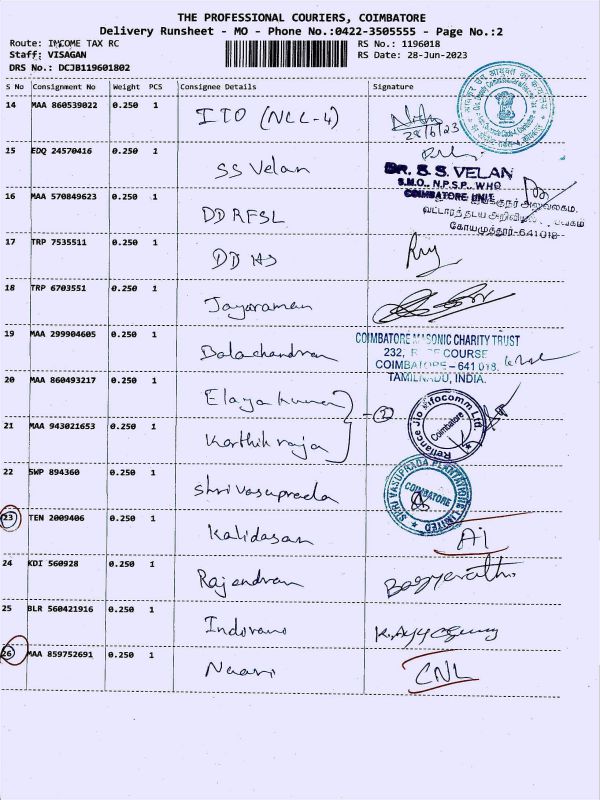 THE PROFESSIONAL COURIERS, COIMBATORE
Delivery Runsheet - MO - Phone No.:0422-3505555 - Page No.:2
Route: INCOME TAX RC
RS No.: 1196018
Staff: VISAGAN
RS Date: 28-Jun-2023
DRS No.: DCJB119601802
S No Consignment No Weight PCS Consignee Details Signature
14 MAA 860539022 0.250 1 ITO (NCC-4)
28/6/23
15 EDQ 24570416 0.250 1 SS Velan
DR. S. S. VELAN
S.M.O., N.P.S.P., WHO
COIMBATORE UNIT
16 MAA 570849623 0.250 1 DD RFSL
கோயமுத்தூர்-641 018
17 TRP 7535511 0.250 1 DD HS
18 TRP 6703551 0.250 1 Jayaraman
19 MAA 299904605 0.250 1 Balachandran
COIMBATORE MASONIC CHARITY TRUST
232, RACE COURSE
COIMBATORE - 641 018.
TAMILNADU, INDIA.
20 MAA 860493217 0.250 1 Elaya kumar
2
Reliance Jio Infocomm Ltd.
Coimbatore
21 MAA 943021653 0.250 1 Karthik raja
22 SWP 894360 0.250 1 Shri Vasuprada
SHRI VASUPRADA PLANTATIONS LIMITED
COIMBATORE
23 TEN 2009406 0.250 1 Kalidasan AI
24 KDI 560928 0.250 1 Rajendran Bagyarathi
25 BLR 560421916 0.250 1 Indirani
26 MAA 859752691 0.250 1 CNL